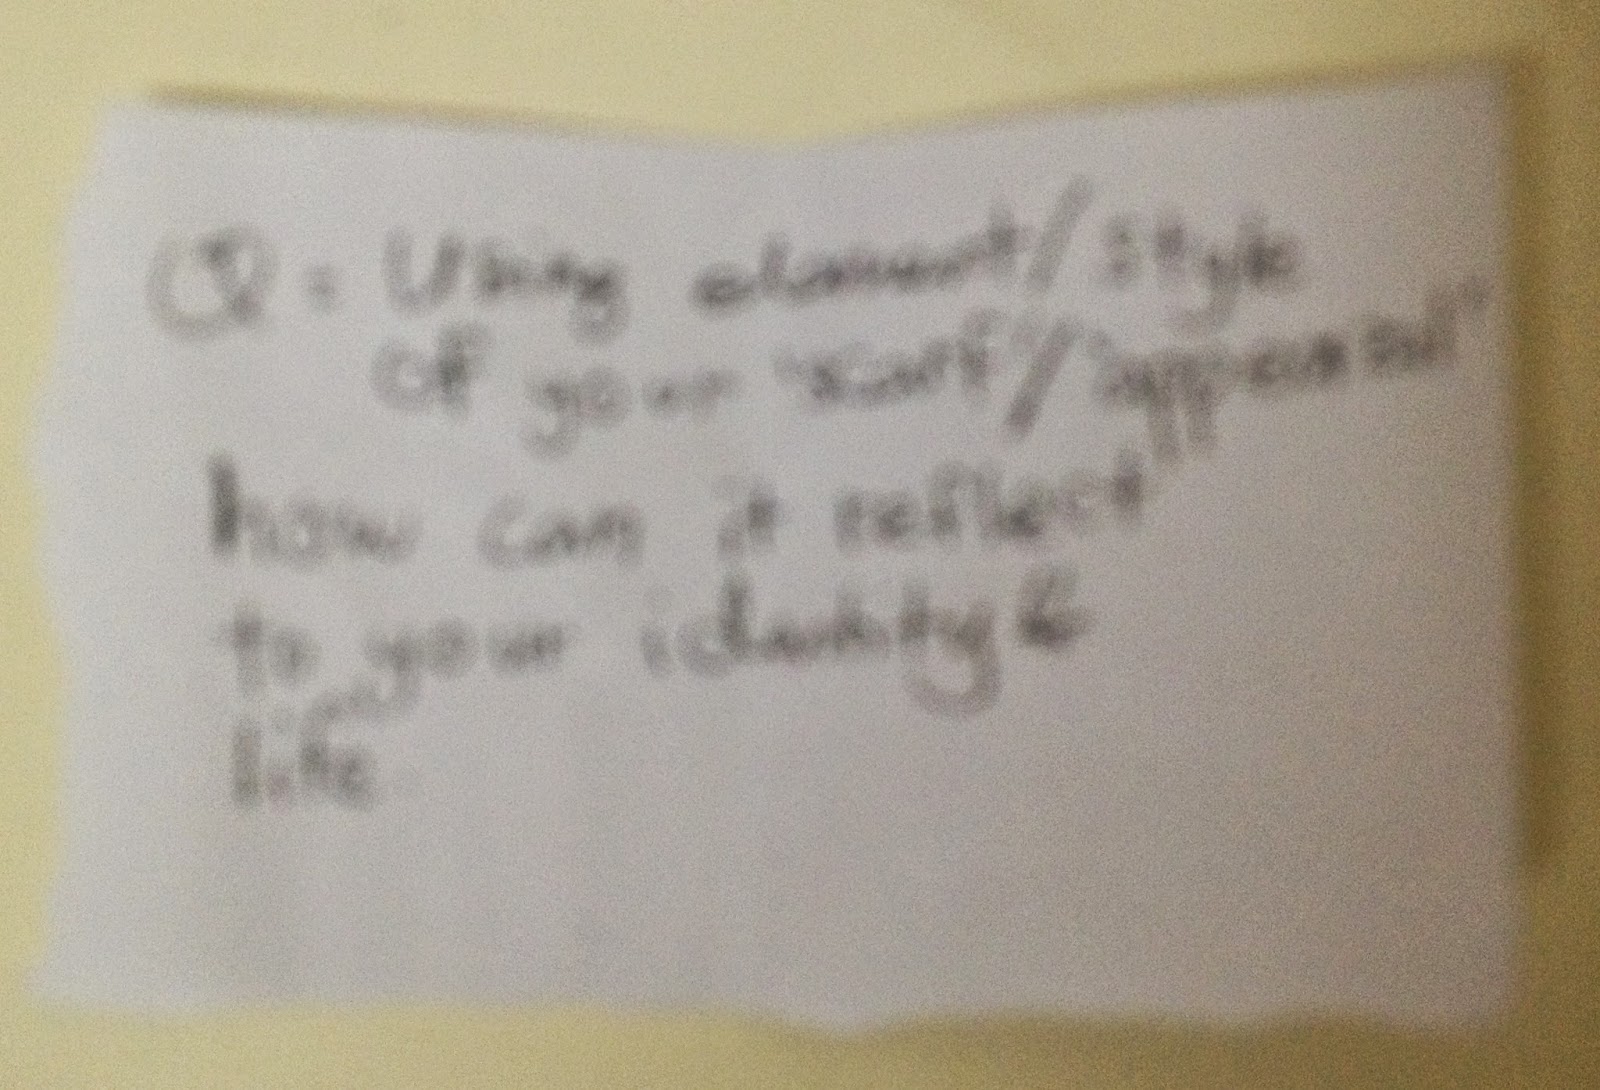 Q = Using element/style
of your "scarf"/"apparel"
how can it reflect
to your identity &
life